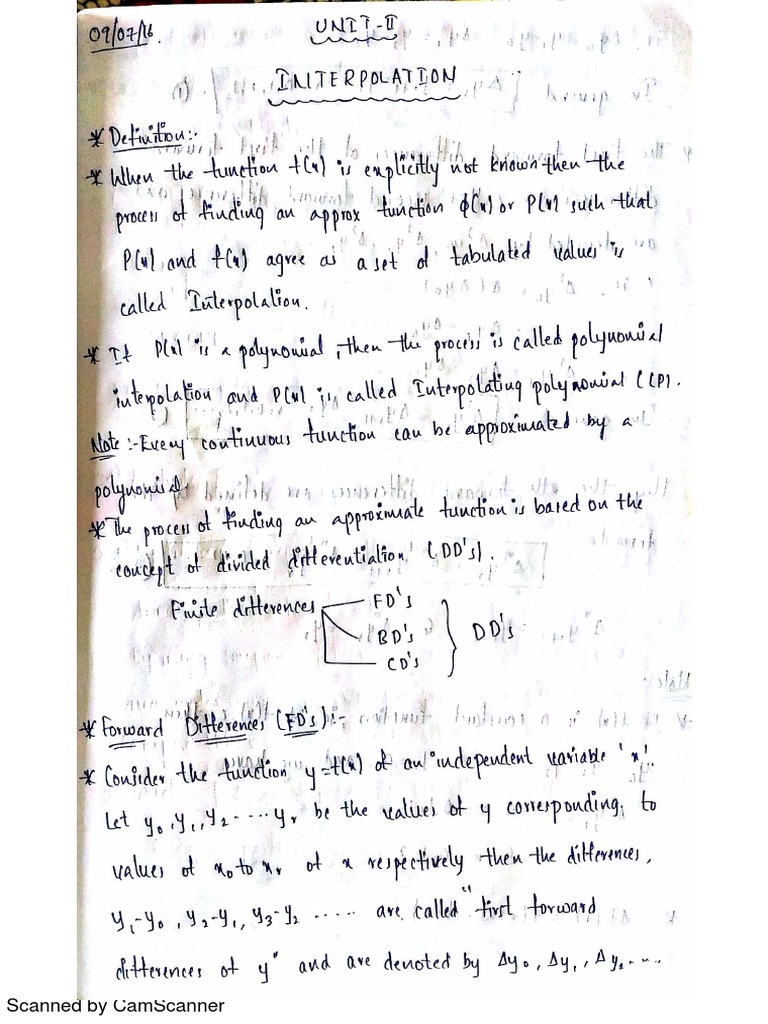 09/07/16.
UNIT-II
INTERPOLATION
* Definition:-
* When the function f(x) is explicitly not known then the
process of finding an approx function ϕ(x) or P(x) such that
P(x) and f(x) agree as a set of tabulated values is
called Interpolation.
* If P(x) is a polynomial, then the process is called polynomial
interpolation and P(x) is called Interpolating polynomial (IP).
Note :- Every continuous function can be approximated by a
polynomial.
* The process of finding an approximate function is based on the
concept of divided differentiation (DD's).
Finite differences FD's
BD's DD's
CD's
* Forward Differences (FD's) :-
* Consider the function y=f(x) of an independent variable 'x'.
Let y₀, y₁, y₂ ---- yᵣ be the values of y corresponding to
values of x₀ to xᵣ of x respectively then the differences,
y₁-y₀, y₂-y₁, y₃-y₂ ..... are called "first forward
differences of y" and are denoted by Δy₀, Δy₁, Δy₂ ....
Scanned by CamScanner